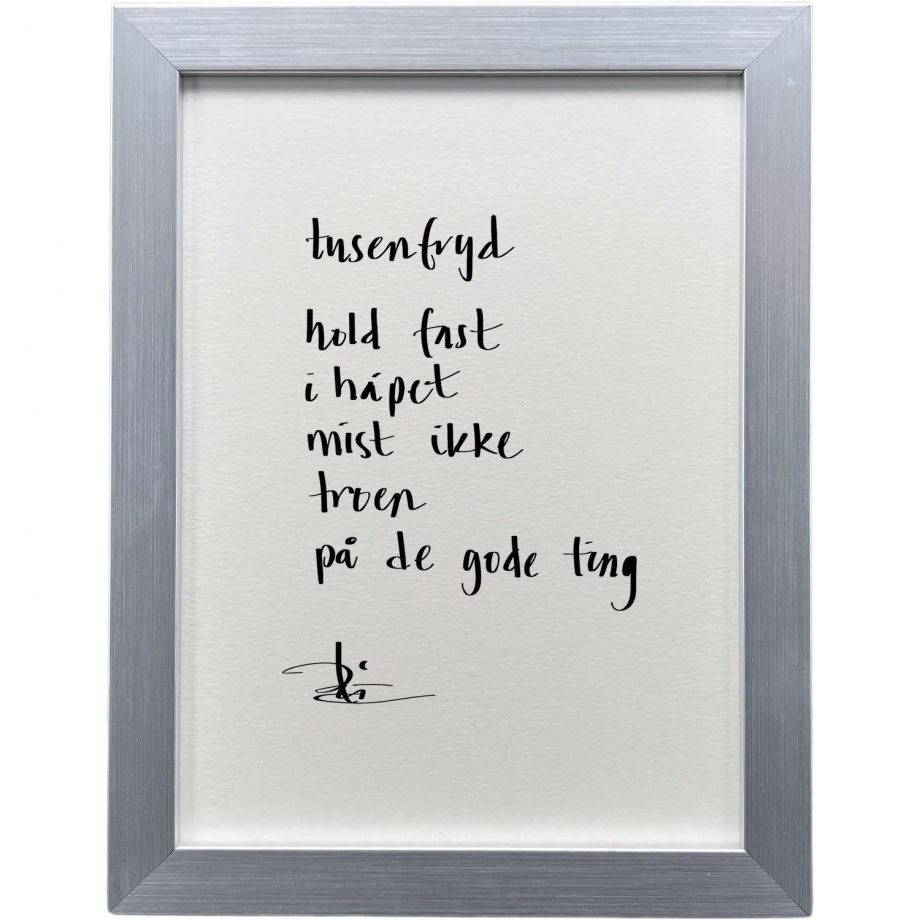 tusenfryd
hold fast
i håpet
mist ikke
troen
på de gode ting